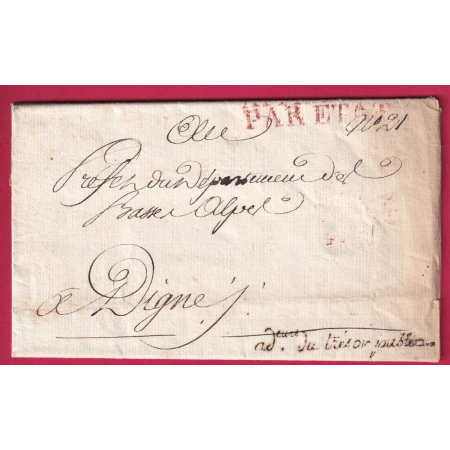 PAR ETAT
N° 21
Au
Prefet du Département des
Basses Alpes
a Digne
du trésor public